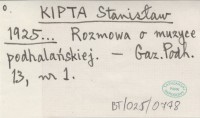 o.
KIPTA Stanisław
1925... Rozmowa o muzyce
podhalańskiej. — Gaz. Podh.
13, nr 1.
BT/025/0478